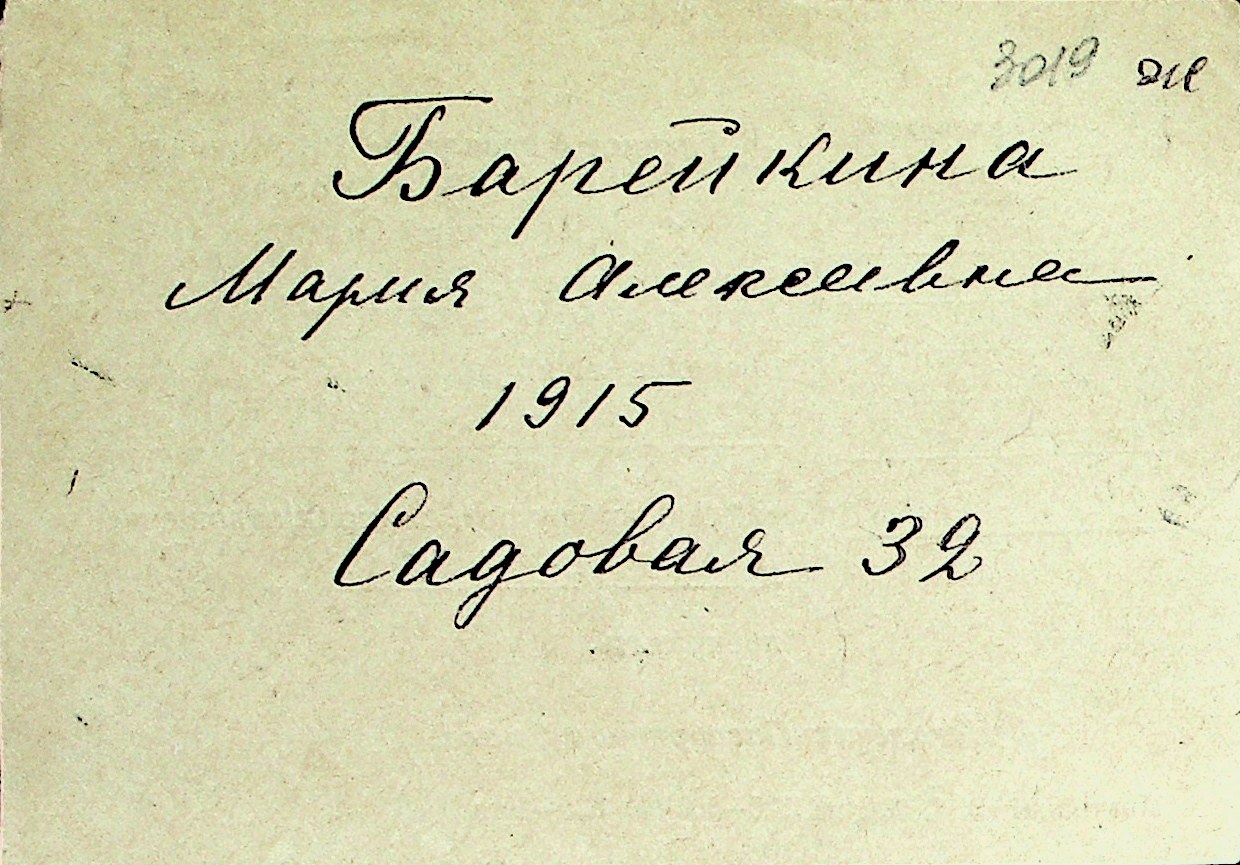 3019 ж
Барейкина
Мария Алексеевна
1915
Садовая 32